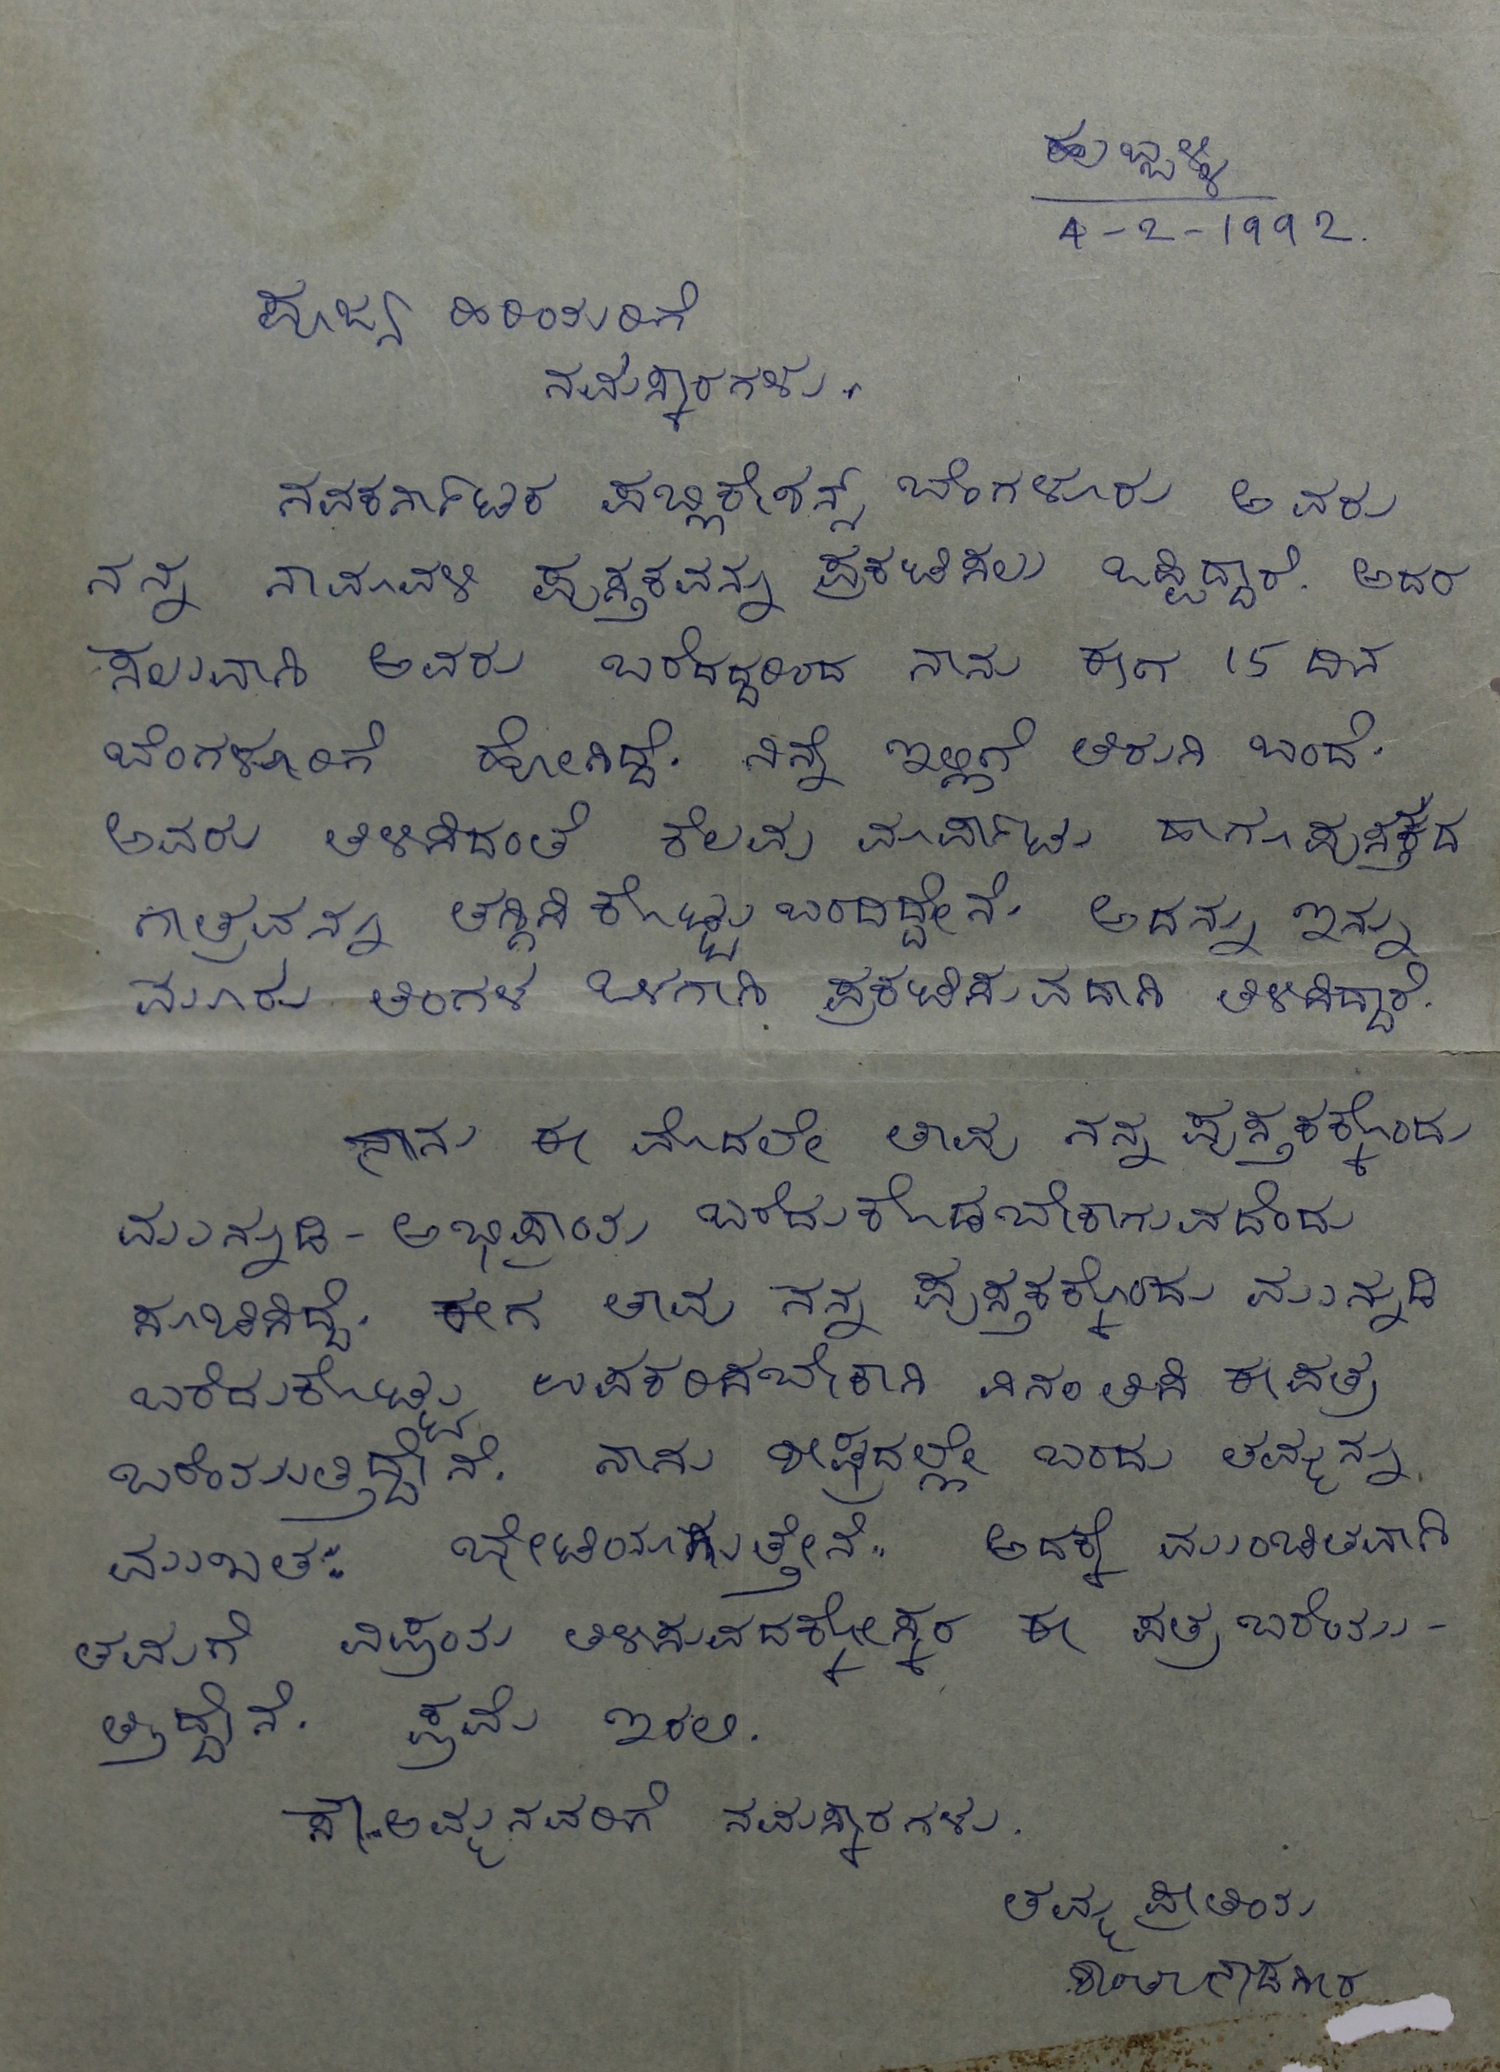 ಹುಬ್ಬಳ್ಳಿ
4-2-1992.
ಪೂಜ್ಯ ಹಿರಿಯರಿಗೆ
ನಮಸ್ಕಾರಗಳು.
ನವಕರ್ನಾಟಕ ಪಬ್ಲಿಕೇಶನ್ಸ್ ಬೆಂಗಳೂರು ಅವರು
ನನ್ನ ನಾಮಾವಳಿ ಪುಸ್ತಕವನ್ನು ಪ್ರಕಟಿಸಲು ಒಪ್ಪಿದ್ದಾರೆ. ಅದರ
ಸಲುವಾಗಿ ಅವರು ಬರೆದದ್ದರಿಂದ ನಾನು ಈಗ 15 ದಿನ
ಬೆಂಗಳೂರಿಗೆ ಹೋಗಿದ್ದೆ. ನಿನ್ನೆ ಇಲ್ಲಿಗೆ ತಿರುಗಿ ಬಂದೆ.
ಅವರು ತಿಳಿಸಿದಂತೆ ಕೆಲವು ಮಾರ್ಪಾಟು ಹಾಗೂ ಪುಸ್ತಕದ
ಗಾತ್ರವನ್ನು ತಗ್ಗಿಸಿ ಕೊಟ್ಟು ಬಂದಿದ್ದೇನೆ. ಅದನ್ನು ಇನ್ನು
ಮೂರು ತಿಂಗಳ ಒಳಗಾಗಿ ಪ್ರಕಟಿಸುವದಾಗಿ ತಿಳಿಸಿದ್ದಾರೆ.
ನಾನು ಈ ಮೊದಲೇ ತಾವು ನನ್ನ ಪುಸ್ತಕಕ್ಕೊಂದು
ಮುನ್ನುಡಿ - ಅಭಿಪ್ರಾಯ ಬರೆದುಕೊಡಬೇಕಾಗುವದೆಂದು
ಸೂಚಿಸಿದ್ದೆ. ಈಗ ತಾವು ನನ್ನ ಪುಸ್ತಕಕ್ಕೊಂದು ಮುನ್ನುಡಿ
ಬರೆದುಕೊಟ್ಟು ಉಪಕರಿಸಬೇಕಾಗಿ ವಿನಂತಿಸಿ ಈ ಪತ್ರ
ಬರೆಯುತ್ತಿದ್ದೇನೆ. ನಾನು ಶೀಘ್ರದಲ್ಲೇ ಬಂದು ತಮ್ಮನ್ನು
ಮುಖತಃ ಭೇಟಿಯಾಗುತ್ತೇನೆ. ಅದಕ್ಕೆ ಮುಂಚಿತವಾಗಿ
ತಮಗೆ ವಿಷಯ ತಿಳಿಸುವದಕ್ಕೋಸ್ಕರ ಈ ಪತ್ರ ಬರೆಯು-
ತ್ತಿದ್ದೇನೆ. ಕ್ಷಮೆ ಇರಲಿ.
ಸೌ. ಅಮ್ಮನವರಿಗೆ ನಮಸ್ಕಾರಗಳು.
ತಮ್ಮ ಪ್ರೀತಿಯ